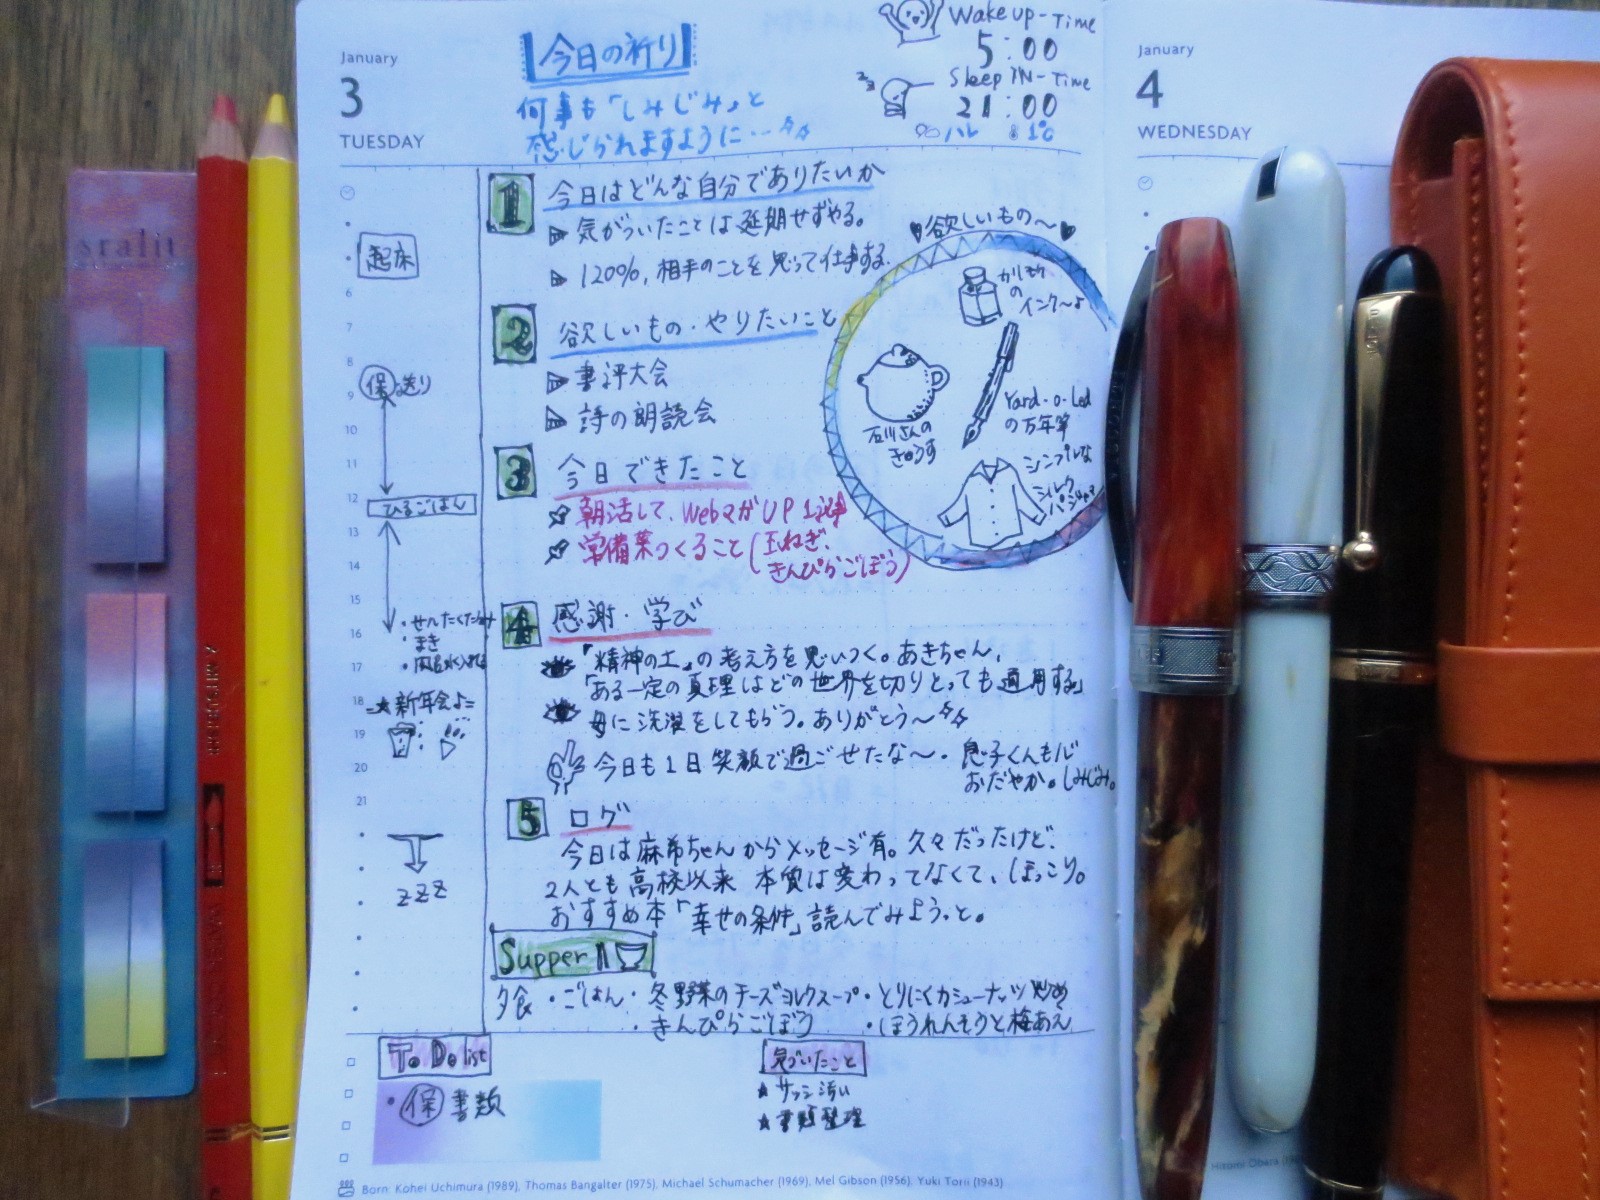 January
3
TUESDAY
今日の祈り
何事も「しみじみ」と
感じられますように…
Wake up-Time
5:00
Sleep IN-Time
21:00
ハレ 1℃
January
4
WEDNESDAY
起床
6
7
8
9
10
11
12
13
14
15
16
17
18
19
20
21
保送り
ひるごはん
・まき
★新年会♪
zzz
1 今日はどんな自分でありたいか
気がついたことは延期せずやる。
120%、相手のことを思って仕事する。
2 欲しいもの・やりたいこと
書評大会
詩の朗読会
♥欲しいもの〜♥
インク〜♪
石川さんの
きゅうす
Yard-o-Led
の万年筆
シンプルな
シルク
3 今日できたこと
朝活して、WebマガUP 1記事
常備菜つくること(玉ねぎ、
きんぴらごぼう)
4 感謝・学び
「精神の土」の考え方を思いつく。あきちゃん、
「ある一定の真理はどの世界を切りとっても適用する」
母に洗濯をしてもらう。ありがとう〜
今日も1日笑顔で過ごせたな〜・息子くんも心
おだやか。しみじみ。
5 ログ
今日は麻希ちゃんからメッセージ有。久々だったけど、
2人とも高校以来 本質は変わってなくて、ほっこり。
おすすめ本「幸せの条件」読んでみようっと。
Supper
夕食・ごはん・冬野菜のチーズミルクスープ・とりにくカシューナッツ炒め
・きんぴらごぼう ・ほうれんそうと梅あえ
To Do list
・保書類
気づいたこと
★サッシ汚い
★書類整理
Born: Kohei Uchimura (1989), Thomas Bangalter (1975), Michael Schumacher (1969), Mel Gibson (1956), Yuki Torii (1943)
Hitomi Obara